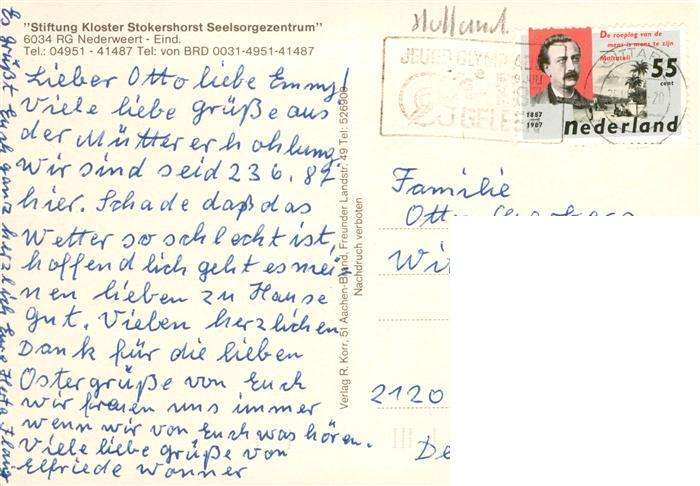 "Stiftung Kloster Stokershorst Seelsorgezentrum"
6034 RG Nederweert - Eind.
Tel.: 04951 - 41487 Tel: von BRD 0031-4951-41487
Lieber Otto liebe Emmy!
Viele liebe grüße aus
der Müttererhohlung
wir sind seid 23 6. 87
hier. Schade daß das
Wetter so schlecht ist,
hoffendlich geht es mei
nen lieben zu Hause
gut. Vielen herzlichen
Dank für die lieben
Ostergrüße von Euch
wir freuen uns immer
wenn wir von Euch was hören.
Viele liebe grüße von
Elfriede Wonner
Es grüßt Euch ganz herzlich Eure Herta
Verlag R. Korr, 51 Aachen-Brand, Freunder Landstr. 49 Tel: 526908
Nachdruck verboten
Holland
De roeping van de
mens is mens te zijn
Multatuli
55
cent
1887
1987
nederland
Familie
Otto
2120